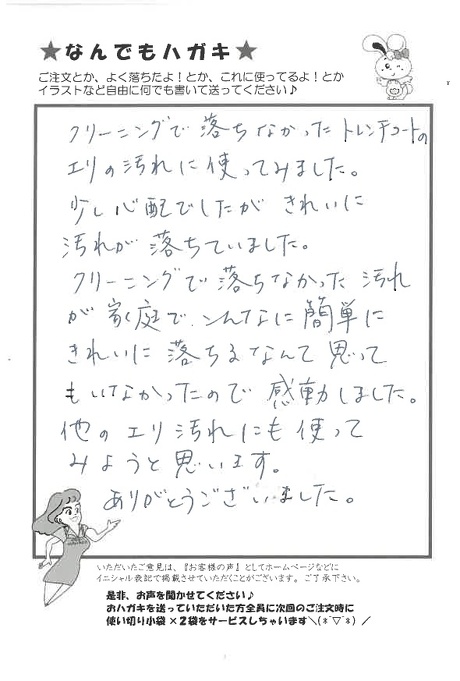 ★なんでもハガキ★
ご注文とか、よく落ちたよ！とか、これに使ってるよ！とか
イラストなど自由に何でも書いて送ってください♪
クリーニングで落ちなかったトレンチコートの
エリの汚れに使ってみました。
少し心配でしたがきれいに
汚れが落ちていました。
クリーニングで落ちなかった汚れ
が家庭でこんなに簡単に
きれいに落ちるなんて思って
もいなかったので感動しました。
他のエリ汚れにも使って
みようと思います。
ありがとうございました。
いただいたご意見は、『お客様の声』としてホームページなどに
イニシャル表記で掲載させていただくことがございます。ご了承下さい。
是非、お声を聞かせてください♪
おハガキを送っていただいた方全員に次回のご注文時に
使い切り小袋×２袋をサービスしちゃいます＼(*´▽`*)／